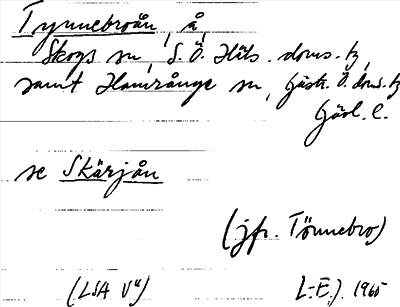 Tynnebroån, å,
Skogs sn, S.Ö. Häls. doms. tg,
samt Hamrånge sn, Gästr. Ö. doms. tg
Gävl. l.
se Skärjån
(jfr. Tönnebro)
(LSA V") L.E.J. 1965